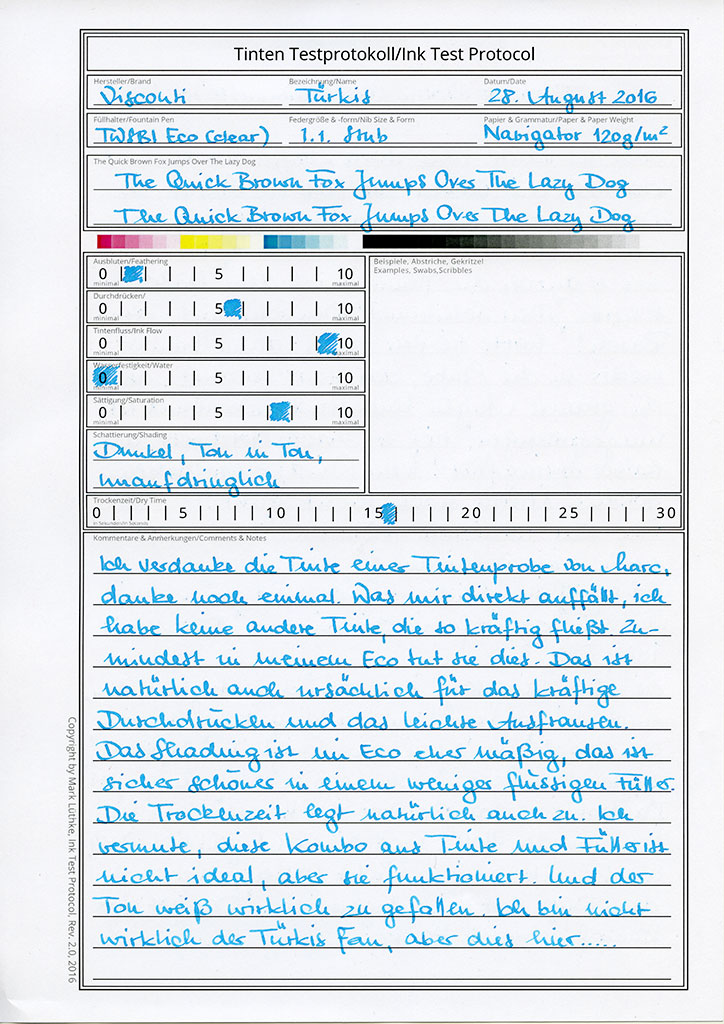 Tinten Testprotokoll/Ink Test Protocol
Hersteller/Brand Bezeichnung/Name Datum/Date
Visconti Türkis 28. August 2016
Füllhalter/Fountain Pen Federgröße & -form/Nib Size & Form Papier & Grammatur/Paper & Paper Weight
TWSBI Eco (clear) 1.1. Stub Navigator 120g/m²
The Quick Brown Fox Jumps Over The Lazy Dog
The Quick Brown Fox Jumps Over The Lazy Dog
The Quick Brown Fox Jumps Over The Lazy Dog
Ausbluten/Feathering
0 5 10
minimal maximal
Durchdrücken/
0 5 10
minimal maximal
Tintenfluss/Ink Flow
0 5 10
minimal maximal
Wasserfestigkeit/Water
0 5 10
minimal maximal
Sättigung/Saturation
0 5 10
minimal maximal
Schattierung/Shading
Dunkel, Ton in Ton,
unaufdringlich
Beispiele, Abstriche, Gekritzel
Examples, Swabs,Scribbles
Trockenzeit/Dry Time
0 5 10 15 20 25 30
in Sekunden/in Seconds
Kommentare & Anmerkungen/Comments & Notes
Ich verdanke die Tinte einer Tintenprobe von Marc,
danke noch einmal. Was mir direkt auffällt, ich
habe keine andere Tinte, die so kräftig fließt. Zu-
mindest in meinem Eco tut sie dies. Das ist
natürlich auch ursächlich für das kräftige
Durchdrücken und das leichte Ausfransen.
Das Shading ist im Eco eher mäßig, das ist
sicher schöner in einem weniger flüssigen Füller.
Die Trockenzeit legt natürlich auch zu. Ich
vermute, diese Kombo aus Tinte und Füller ist
nicht ideal, aber sie funktioniert. Und der
Ton weiß wirklich zu gefallen. Ich bin nicht
wirklich der Türkis Fan, aber dies hier.....
Copyright by Mark Lüthke, Ink Test Protocol, Rev. 2.0, 2016